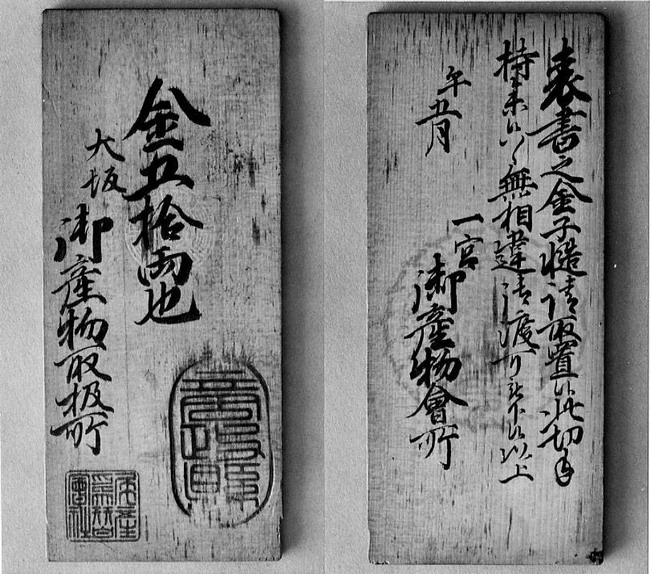 金五拾両也
大坂
御産物取扱所
表書之金子慥請取置候此切手
持来候ハヽ無相違請渡可申候以上
午五月
一宮
御産物會所